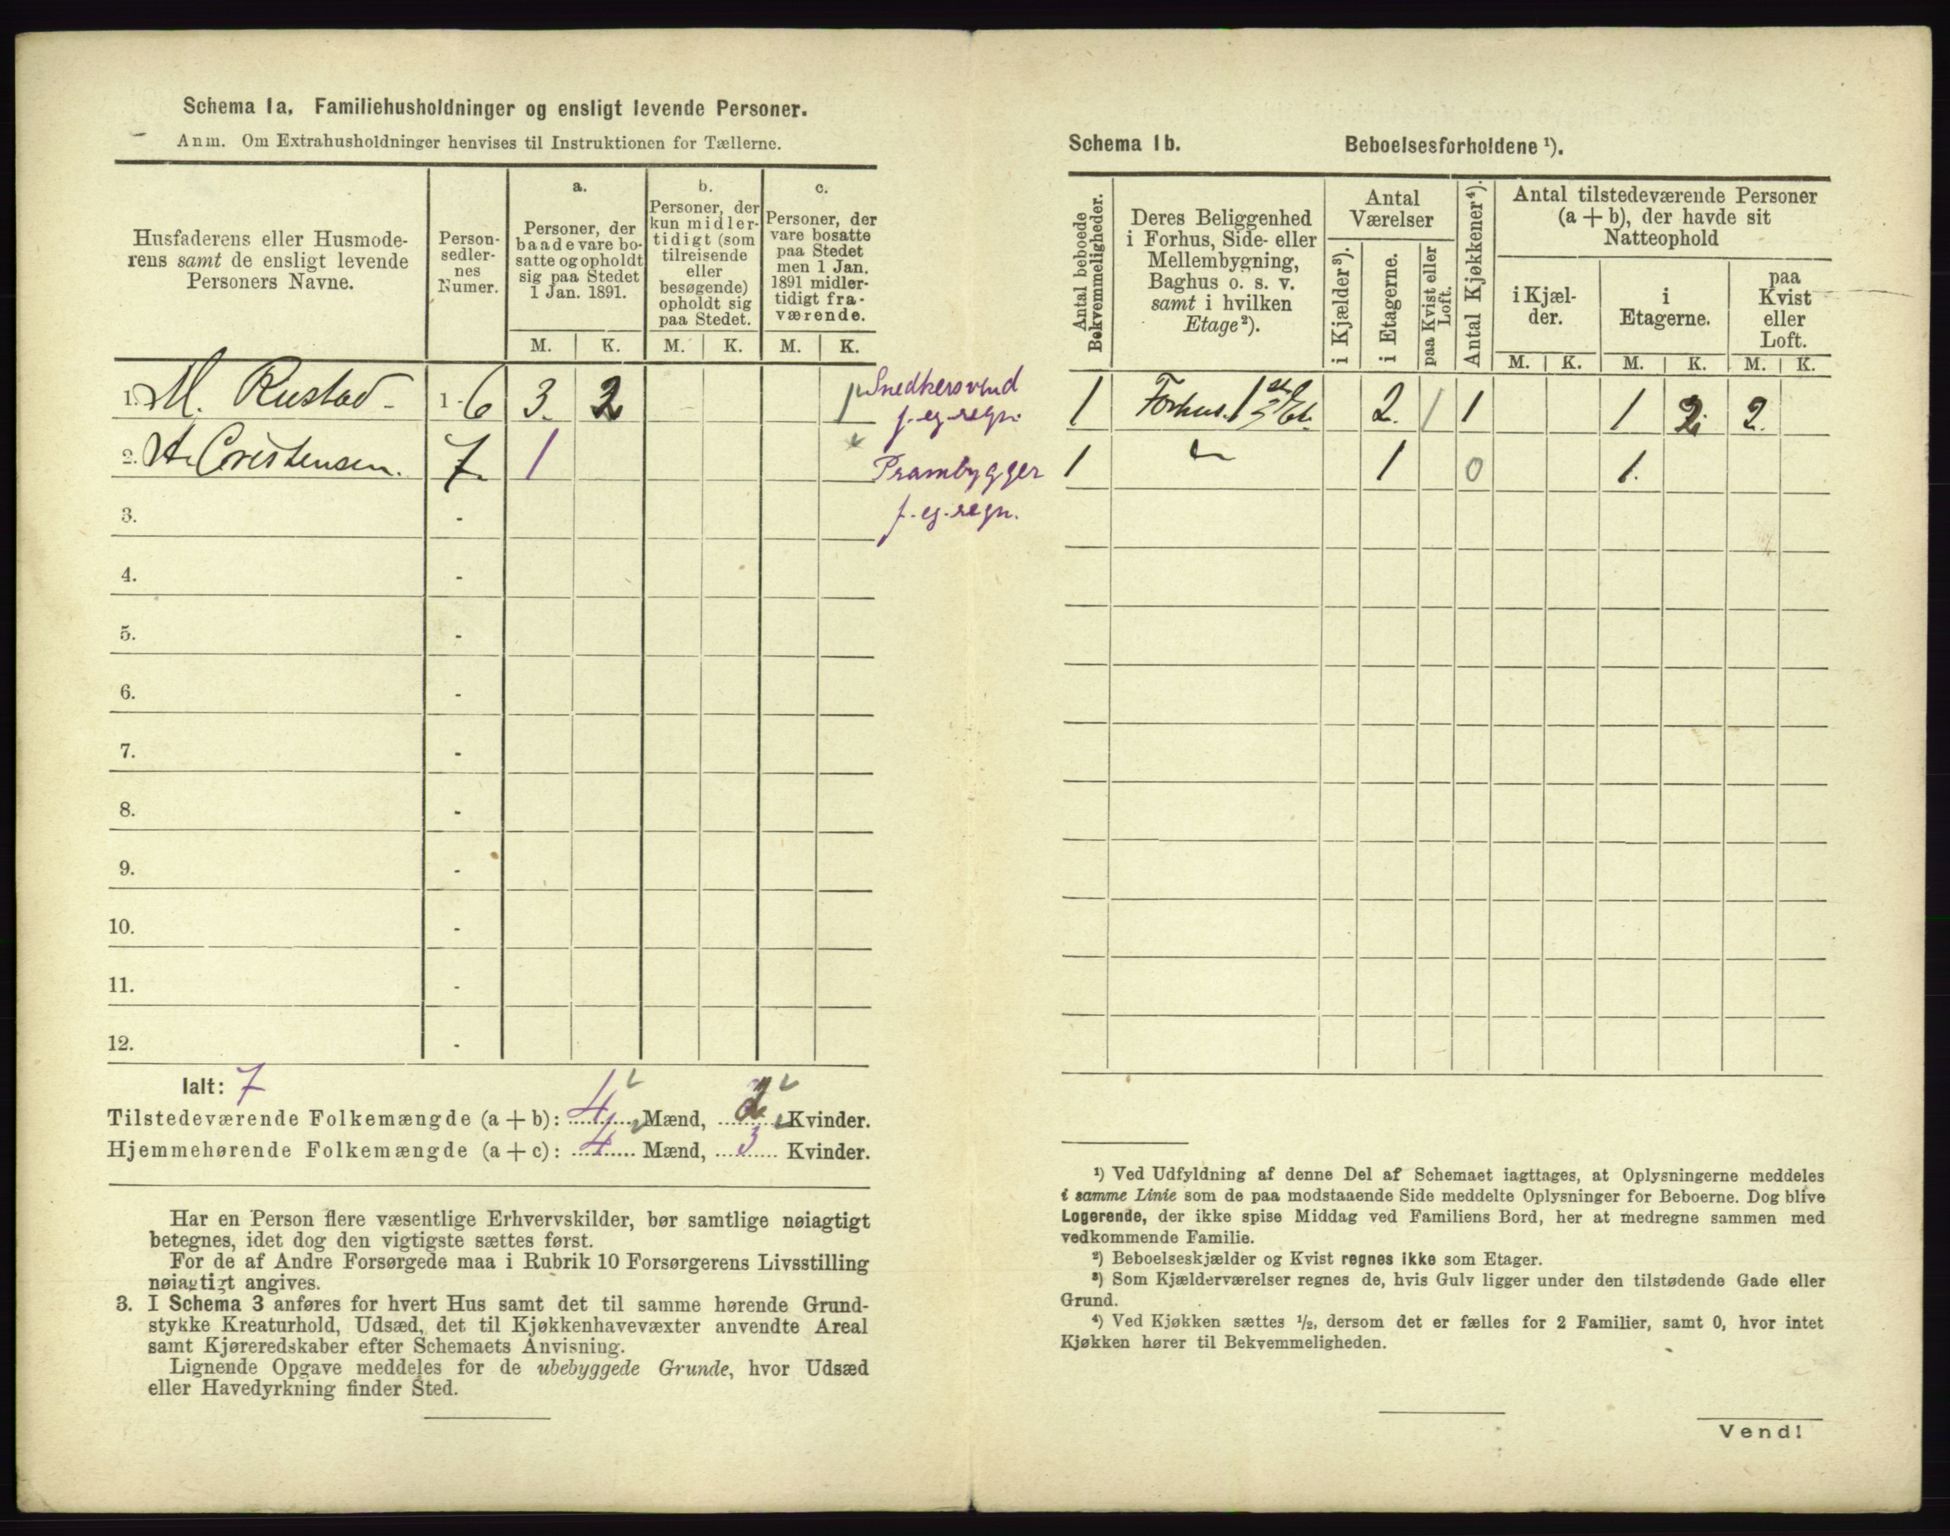 Schema 1a. Familiehusholdninger og ensligt levende Personer.
Anm. Om Extrahusholdninger henvises til Instruktionen for Tællerne.
Husfaderens eller Husmoderens samt de ensligt levende Personers Navne.
Personsedlernes Numer.
a.
Personer, der baade vare bosatte og opholdt sig paa Stedet 1 Jan. 1891.
b.
Personer, der kun midlertidigt (som tilreisende eller besøgende) opholdt sig paa Stedet.
c.
Personer, der vare bosatte paa Stedet men 1 Jan. 1891 midlertidigt fraværende.
M. K. M. K. M. K.
1. M. Rustad 1-6 3. 2 1 Snedkersvend
f. eg. regn.
2. A. Cristensen. 7. 1 Prambygger
f. eg. regn.
3. -
4. -
5. -
6. -
7. -
8. -
9. -
10. -
11. -
12. -
Ialt: 7
Tilstedeværende Folkemængde (a + b): 4 Mænd, 2 Kvinder.
Hjemmehørende Folkemængde (a + c): 4 Mænd, 3 Kvinder.
Har en Person flere væsentlige Erhvervskilder, bør samtlige nøiagtigt
betegnes, idet dog den vigtigste sættes først.
For de af Andre Forsørgede maa i Rubrik 10 Forsørgerens Livsstilling
nøiagtigt angives.
3. I Schema 3 anføres for hvert Hus samt det til samme hørende Grund-
stykke Kreaturhold, Udsæd, det til Kjøkkenhavevæxter anvendte Areal
samt Kjøreredskaber efter Schemaets Anvisning.
Lignende Opgave meddeles for de ubebyggede Grunde, hvor Udsæd
eller Havedyrkning finder Sted.
Schema 1b. Beboelsesforholdene ¹).
Antal beboede Bekvemmeligheder.
Deres Beliggenhed i Forhus, Side- eller Mellembygning, Baghus o. s. v. samt i hvilken Etage²).
Antal Værelser
i Kjælder³).
i Etagerne.
paa Kvist eller Loft.
Antal Kjøkkener⁴).
Antal tilstedeværende Personer (a + b), der havde sit Natteophold
i Kjælder.
i Etagerne.
paa Kvist eller Loft.
M. K. M. K. M. K.
1 Forhus. 1ste Et. 2. 1 1 1 2. 2.
1 1 0 1.
¹) Ved Udfyldning af denne Del af Schemaet iagttages, at Oplysningerne meddeles
i samme Linie som de paa modstaaende Side meddelte Oplysninger for Beboerne. Dog blive
Logerende, der ikke spise Middag ved Familiens Bord, her at medregne sammen med
vedkommende Familie.
²) Beboelseskjælder og Kvist regnes ikke som Etager.
³) Som Kjælderværelser regnes de, hvis Gulv ligger under den tilstødende Gade eller
Grund.
⁴) Ved Kjøkken sættes ½, dersom det er fælles for 2 Familier, samt 0, hvor intet
Kjøkken hører til Bekvemmeligheden.
Vend!